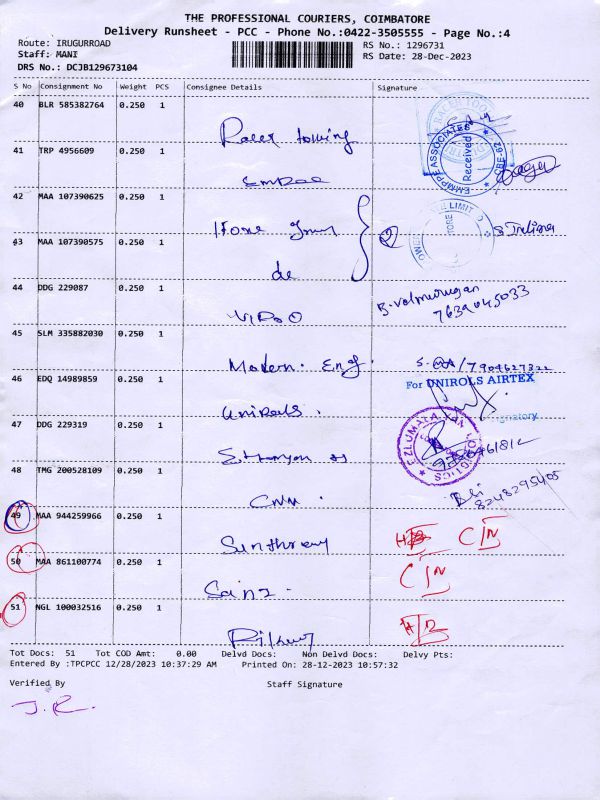 THE PROFESSIONAL COURIERS, COIMBATORE
Delivery Runsheet - PCC - Phone No.:0422-3505555 - Page No.:4
Route: IRUGURROAD RS No.: 1296731
Staff: MANI RS Date: 28-Dec-2023
DRS No.: DCJB129673104
S No Consignment No Weight PCS Consignee Details Signature
40 BLR 585382764 0.250 1
Racer towing
41 TRP 4956609 0.250 1
EMMAPPE ASSOCIATES
Received
CBE-62
42 MAA 107390625 0.250 1
43 MAA 107390575 0.250 1
de
44 DDG 229087 0.250 1
B. Velmurugan
7639045033
45 SLM 335882030 0.250 1
Modern. Eng. 7904627322
46 EDQ 14989859 0.250 1
For UNIROLS AIRTEX
Unirols.
47 DDG 229319 0.250 1
48 TMG 200528109 0.250 1
CNN. 8248295405
49 MAA 944259966 0.250 1
C/N
50 MAA 861100774 0.250 1
C/N
51 NGL 100032516 0.250 1
Tot Docs: 51 Tot COD Amt: 0.00 Delvd Docs: Non Delvd Docs: Delvy Pts:
Entered By :TPCPCC 12/28/2023 10:37:29 AM Printed On: 28-12-2023 10:57:32
Verified By Staff Signature
J.R.